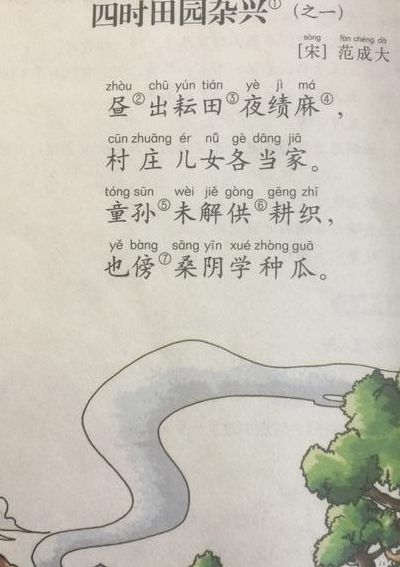 四时田园杂兴①（之一）
sòng fàn chéng dà
[宋] 范成大
zhòu chū yún tián yè jì má
昼②出耘田③夜绩麻④，
cūn zhuāng ér nǚ gè dāng jiā
村庄儿女各当家。
tóng sūn wèi jiě gòng gēng zhī
童孙⑤未解供⑥耕织，
yě bàng sāng yīn xué zhòng guā
也傍⑦桑阴学种瓜。